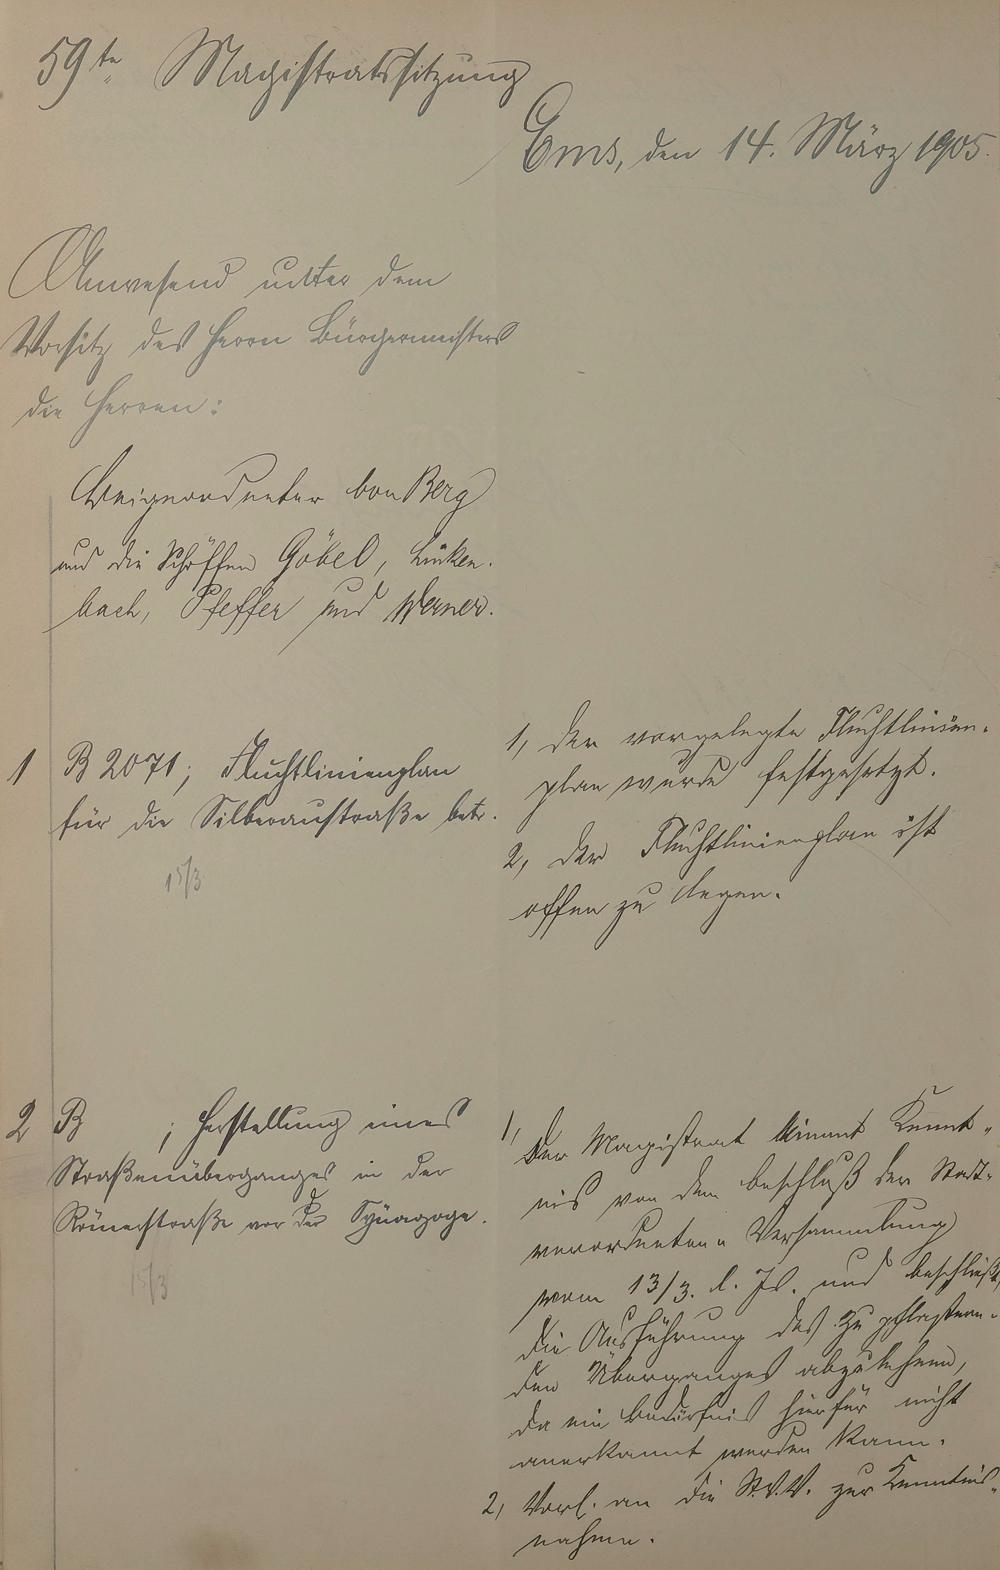 59te Magistratssitzung
Ems, den 14. März 1905.
Anwesend unter dem
Vorsitz des Herrn Bürgermeisters
die Herren:
Beigeordneter von Berg
und die Schöffen Göbel, Linken-
bach, Pfeffer und Werner.
1 B 2071; Fluchtlinienplan
für die Silberaustraße betr.
15/3
1, der vorgelegte Fluchtlinien-
plan wurde festgesetzt.
2, der Fluchtlinienplan ist
offen zu legen.
2 B ; Herstellung eines
Straßenüberganges in der
Römerstraße vor der Synagoge.
15/3
1, Der Magistrat nimmt Kennt-
nis von dem Beschluß der Stadt-
verordneten Versammlung
vom 13/3. d. Js. und beschließt,
die Ausführung des zu pflastern-
den Überganges abzulehnen,
da ein Bedürfnis hierfür nicht
anerkannt werden kann.
2, Vorl. an die St.V.V. zur Kenntnis-
nahme.